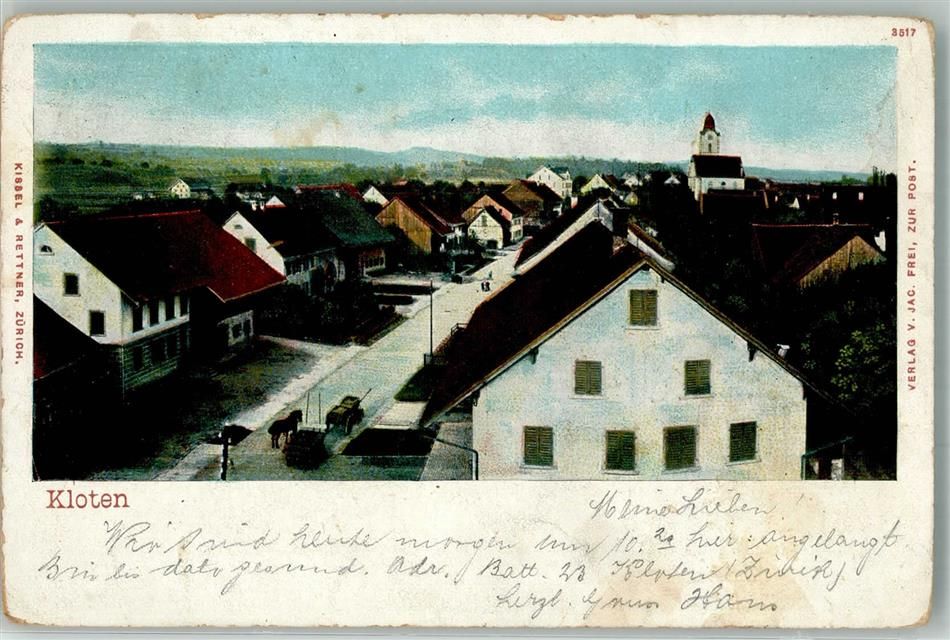 3517
KISSEL & RETTNER, ZÜRICH.
VERLAG V. JAC. FREI, ZUR POST.
Kloten
Meine Lieben!
Wir sind heute morgen um 10. hier angelangt
Bin bis dato gesund. Adr. Batt. 23 Kloten (Zürich)
herzl. Gruss Hans